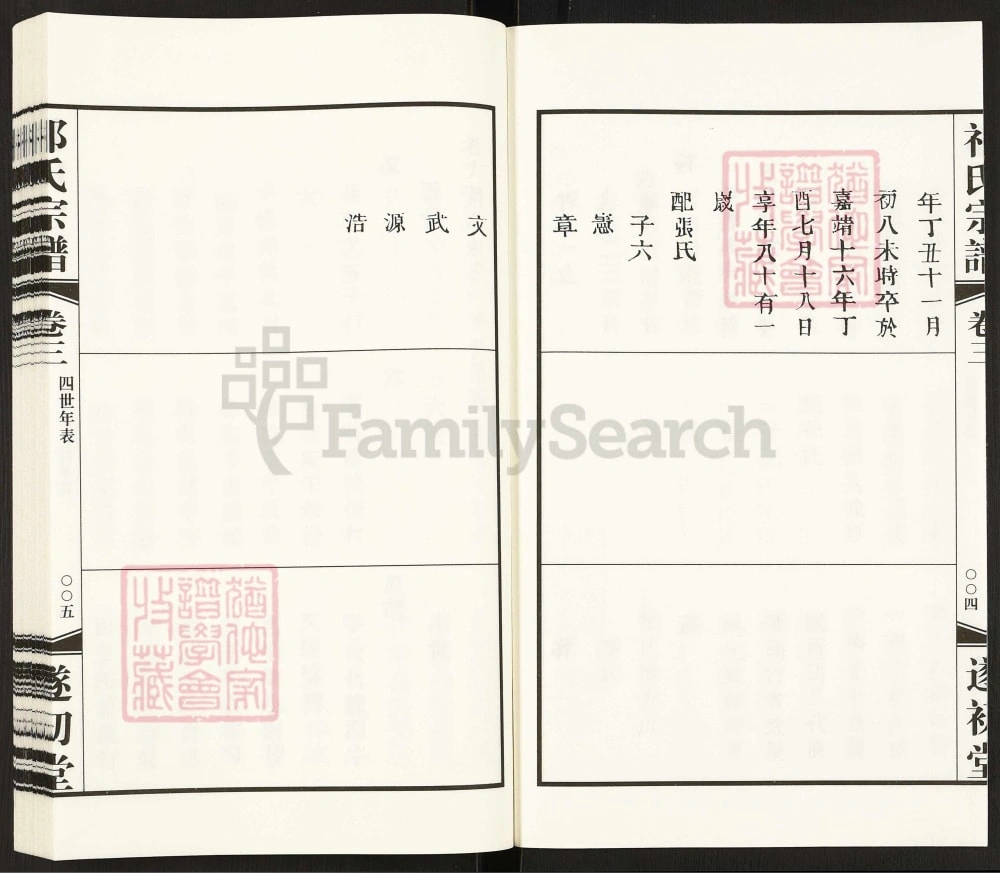 年丁丑十一月
初八未時卒於
嘉靖十六年丁
酉七月十八日
享年八十有一
嵗
配張氏
子六
憲
章
文
武
源
浩
祁氏宗譜
卷三
〇〇四
遂初堂
祁氏宗譜
卷三
四世年表
〇〇五
遂初堂
譜學會
FamilySearch